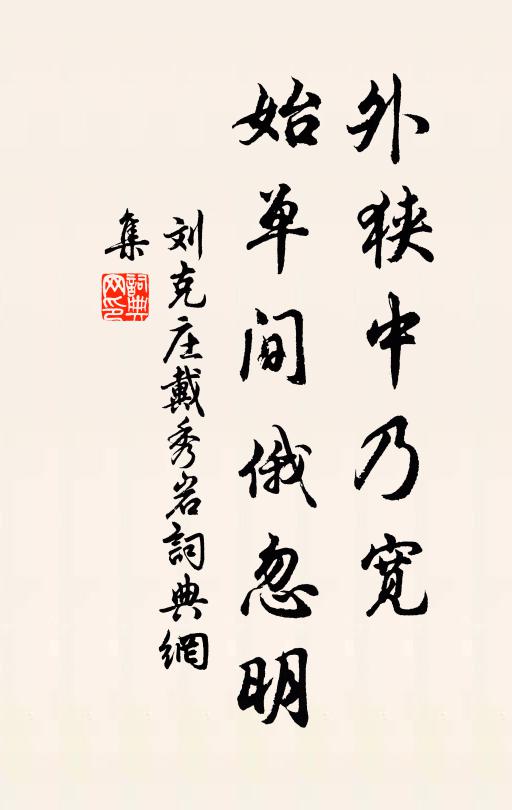 外狭中乃宽
始单间俄忽明
刘克庄戴秀岩詞典網
集
詞典网印